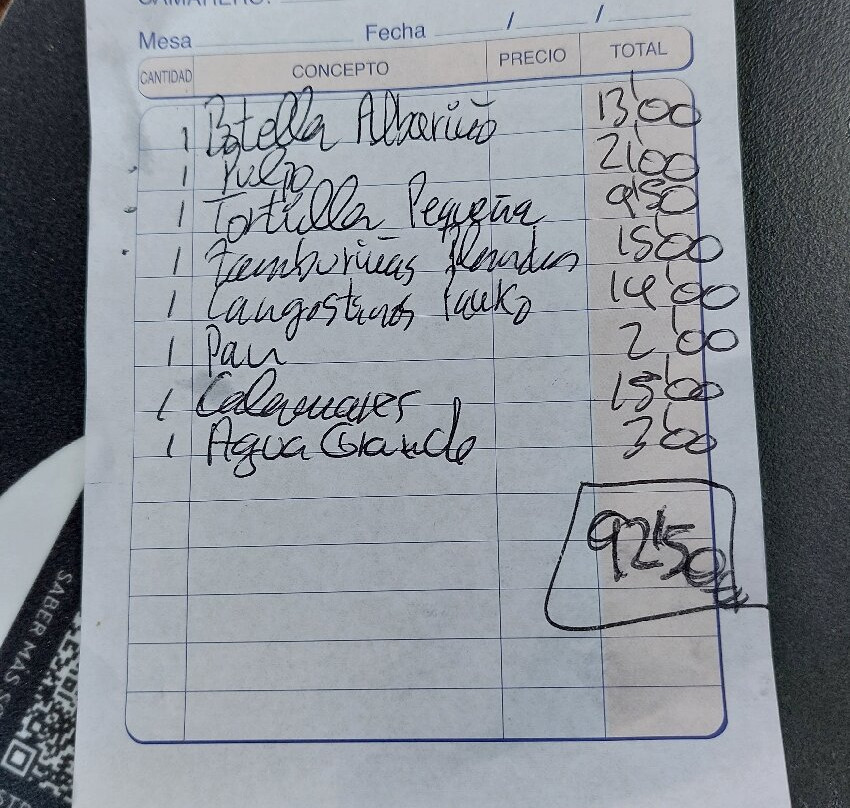 CAMARERO:
Mesa Fecha / /
CANTIDAD CONCEPTO PRECIO TOTAL
1 Botella Albariño 13'00
1 Pulpo 21'00
1 Tortilla Pequeña 9'50
1 Zamburiñas 15'00
1 Langostinos Panko 14'00
1 Pan 2'00
1 Calamares 15'00
1 Agua Grande 3'00
92'50
SABER MAS